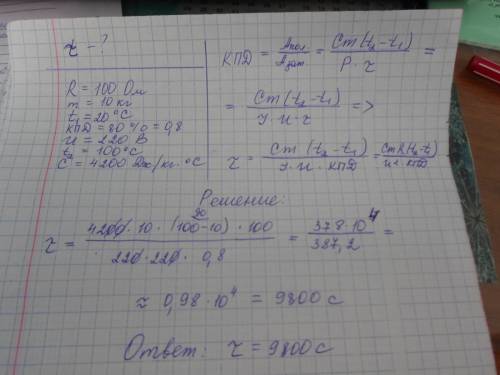 τ - ?
R = 100 Ом
m = 10 кг
t₁ = 20 °C
КПД = 80 % = 0,8
U = 220 В
t₂ = 100 °C
C = 4200 Дж/кг·°C
КПД = Aпол/Aзат = Cm(t₂-t₁)/P·τ =
= Cm(t₂-t₁)/У·U·τ =>
τ = Cm(t₂-t₁)/У·U·КПД = CmR(t₂-t₁)/U²·КПД
Решение:
90
τ = 4200·10·(100-10)·100/220·220·0,8 = 378·10⁴/387,2 =
≈ 0,98·10⁴ = 9800 с
Ответ: τ = 9800 с